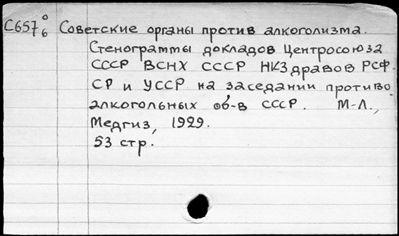 С657⁰₆ Советские органы против алкоголизма.
Стенограммы докладов Центросоюза
СССР ВСНХ СССР НКЗдравов РСФ
СР и УССР на заседании противо
алкогольных об-в СССР. М-Л.,
Медгиз, 1929.
53 стр.